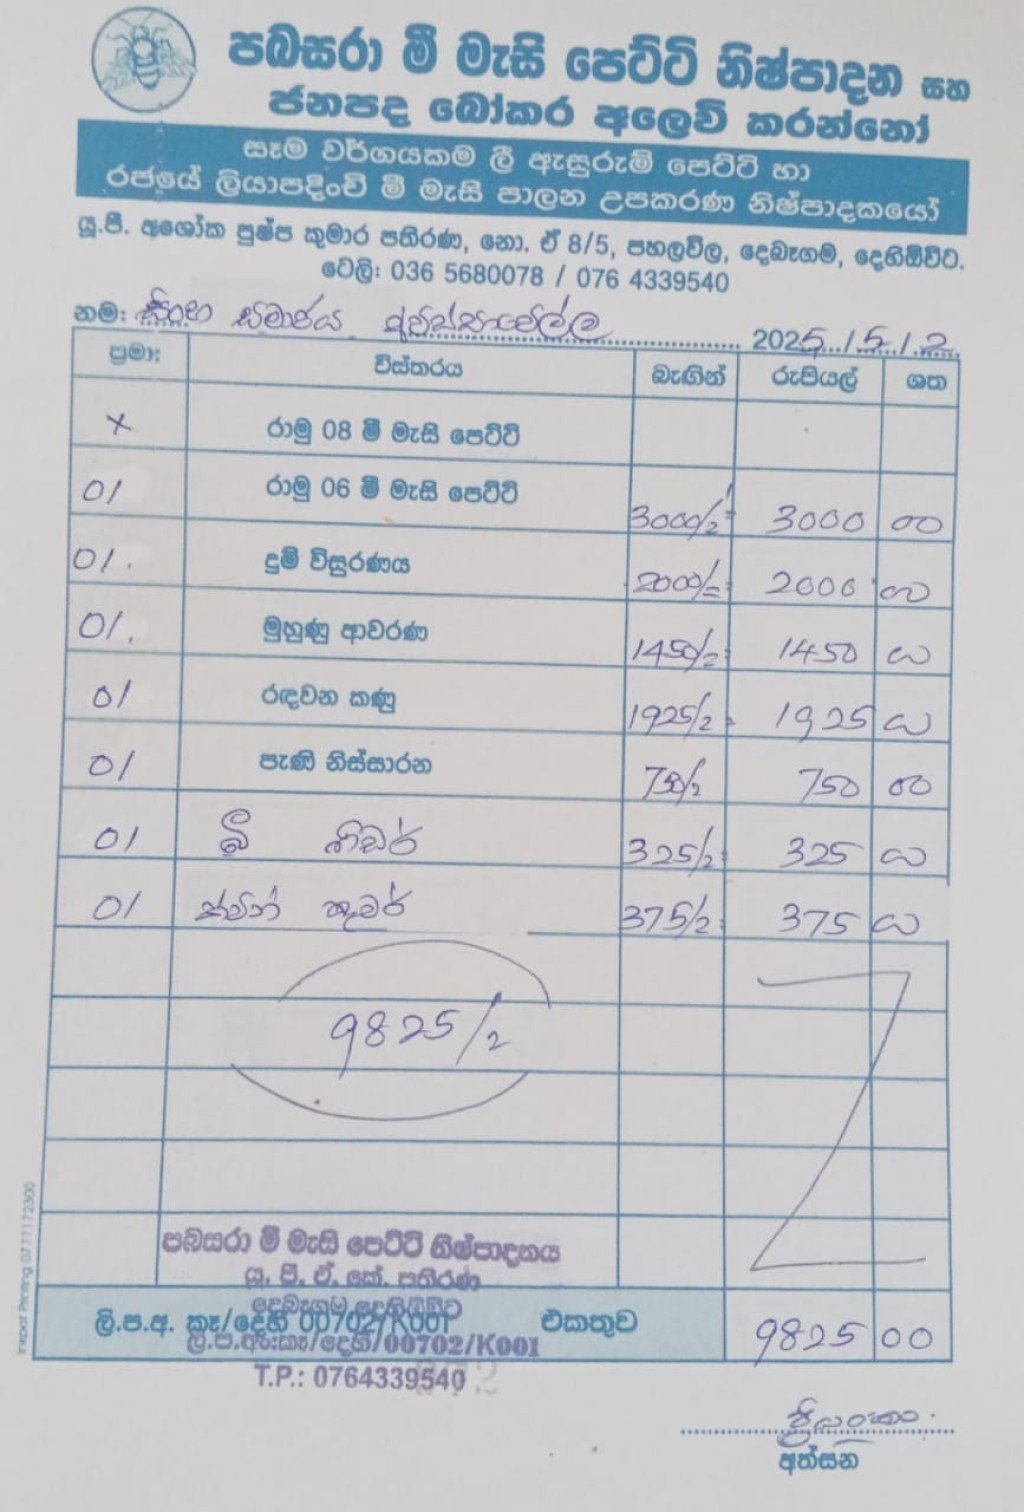 පබසරා මී මැසි පෙට්ටි නිෂ්පාදන සහ
ජනපද බෝකර අලෙවි කරන්නෝ
සෑම වර්ගයකම ලී ඇසුරුම් පෙට්ටි හා
රජයේ ලියාපදිංචි මී මැසි පාලන උපකරණ නිෂ්පාදකයෝ
යූ.පී. අශෝක පුෂ්ප කුමාර පතිරණ, නො. ඒ 8/5, පහලවිල, දෙබෑගම, දෙහිඕවිට.
ටෙලි: 036 5680078 / 076 4339540
නම: සිංහ සමාජය අවිස්සාවේල්ල 2025/5/2
ප්‍රමා: විස්තරය බැගින් රුපියල් ශත
x රාමු 08 මී මැසි පෙට්ටි
01 රාමු 06 මී මැසි පෙට්ටි 3000/= 3000 00
01. දුම් විසුරණය 2000/= 2000 00
01. මුහුණු ආවරණ 1450/= 1450 00
01 රඳවන කණු 1925/= 1925 00
01 පැණි නිස්සාරන 750/= 750 00
01 බී ෆීඩර් 325/= 325 00
01 ක්වීන් කේවර් 375/= 375 00
9825/=
පබසරා මී මැසි පෙට්ටි නිෂ්පාදනය
යූ. පී. ඒ. කේ. පතිරණ
දෙබෑගම දෙහිඕවිට
ලි.ප.අ. කෑ/දෙහි 00702/K001 එකතුව 9825 00
ලි.ප.අ:කෑ/දෙහි/00702/K001
T.P.: 0764339540
ප්‍රියංකා
අත්සන
Inkpot Printing 0777172300